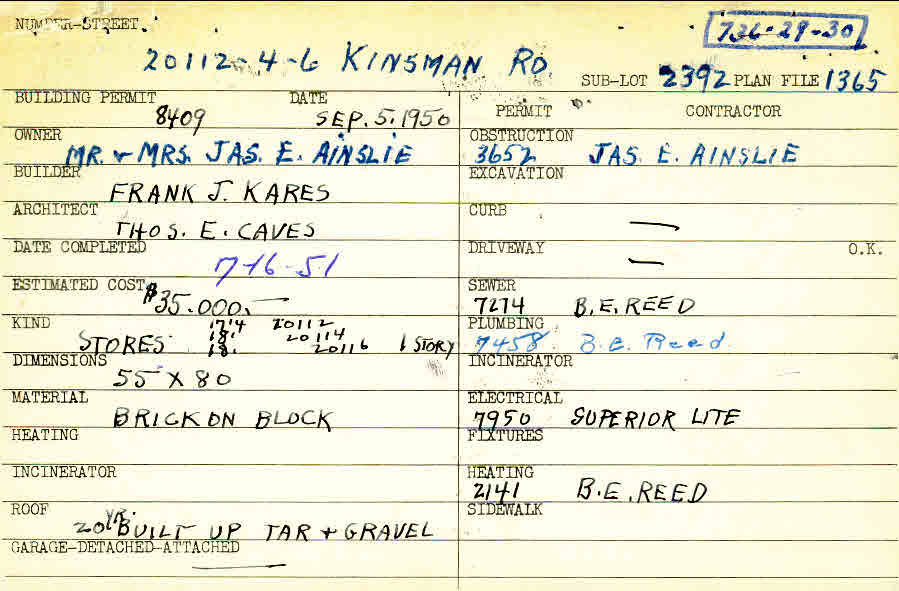 NUMBER-STREET
736-29-30
20112-4-6 KINSMAN RD
SUB-LOT 2392 PLAN FILE 1365
BUILDING PERMIT DATE
8409 SEP. 5. 1950
PERMIT CONTRACTOR
OWNER
MR. + MRS. JAS. E. AINSLIE
OBSTRUCTION
3652 JAS. E. AINSLIE
BUILDER
FRANK J. KARES
EXCAVATION
ARCHITECT
THOS. E. CAVES
CURB
—
DATE COMPLETED
7-16-51
DRIVEWAY O.K.
—
ESTIMATED COST
$35.000.—
SEWER
7274 B.E. REED
KIND
17'4 20112
STORES 18' 20114
18' 20116 1 STORY
PLUMBING
7458 B.E. Reed
DIMENSIONS
55 X 80
INCINERATOR
MATERIAL
BRICK ON BLOCK
ELECTRICAL
7950 SUPERIOR LITE
HEATING
FIXTURES
INCINERATOR
HEATING
2141 B.E. REED
ROOF
20 YR. BUILT UP TAR + GRAVEL
SIDEWALK
GARAGE-DETACHED-ATTACHED
—